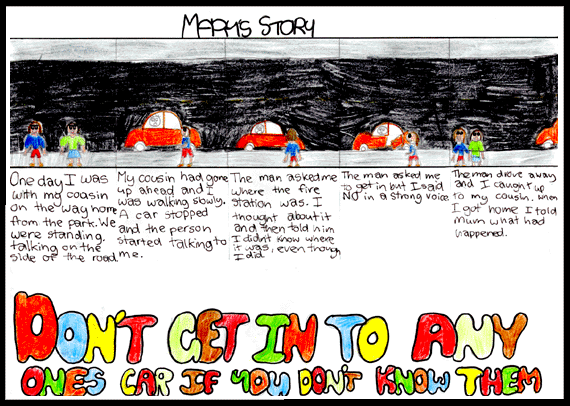 MARY'S STORY
One day I was
with my cousin
on the way home
from the park. We
were standing,
talking on the
side of the road.
My cousin had gone
up ahead and I
was walking slowly.
A car stopped
and the person
started talking to
me.
The man asked me
where the fire
station was. I
thought about it
and then told him
I didn't know where
it was, even though
I did.
The man asked me
to get in but I said
NO in a strong voice
The man drove away
and I caught up
to my cousin. When
I got home I told
mum what had
happened.
DON'T GET IN TO ANY
ONES CAR IF YOU DON'T KNOW THEM